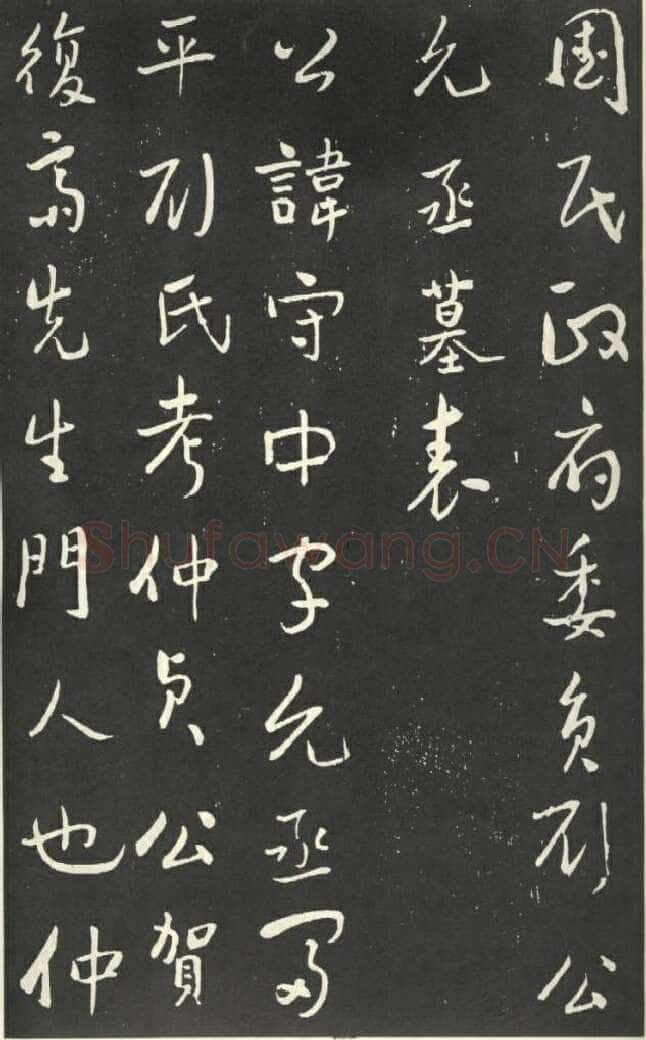 國民政府委員劉公
允丞墓表
公諱守中字允丞富
平劉氏考仲貞公賀
復齋先生門人也仲
Shufawang.CN